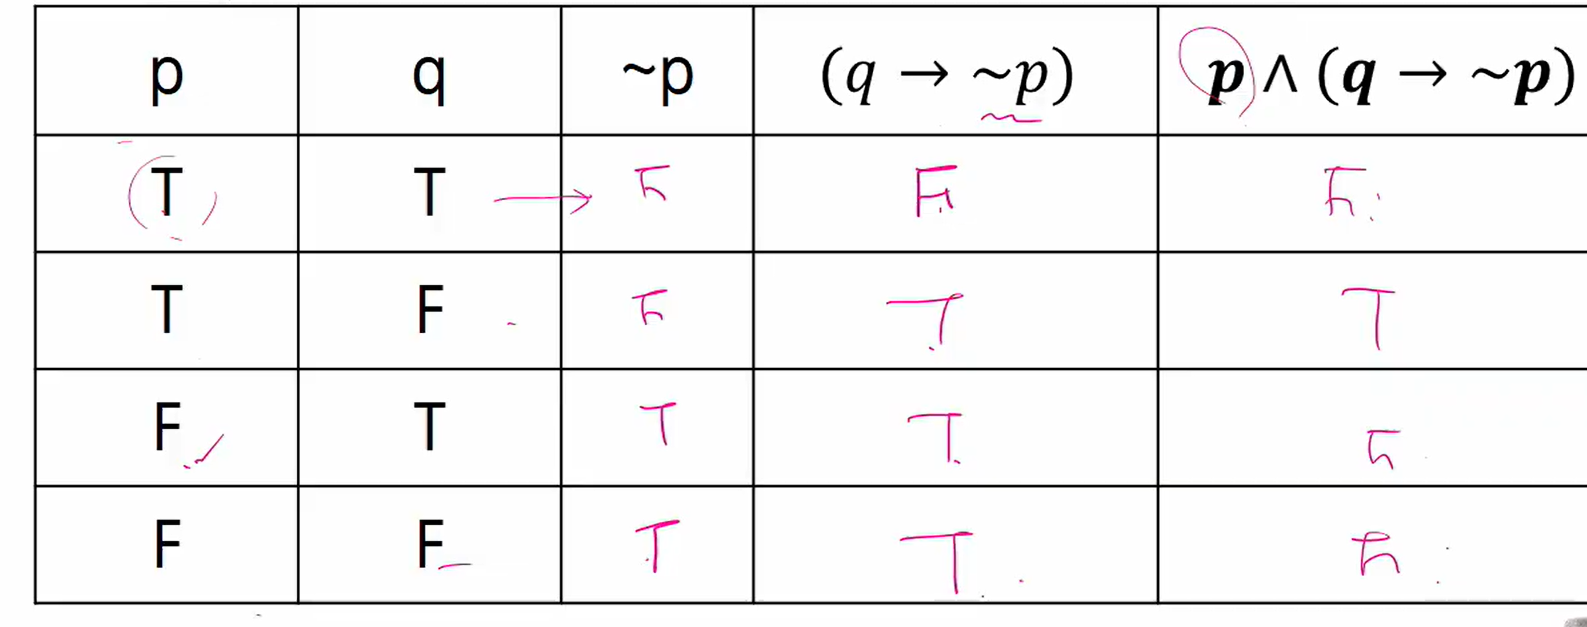 p q ~p (q → ~p) p ∧ (q → ~p)
T T → F F F
T F F T T
F T T T F
F F T T F